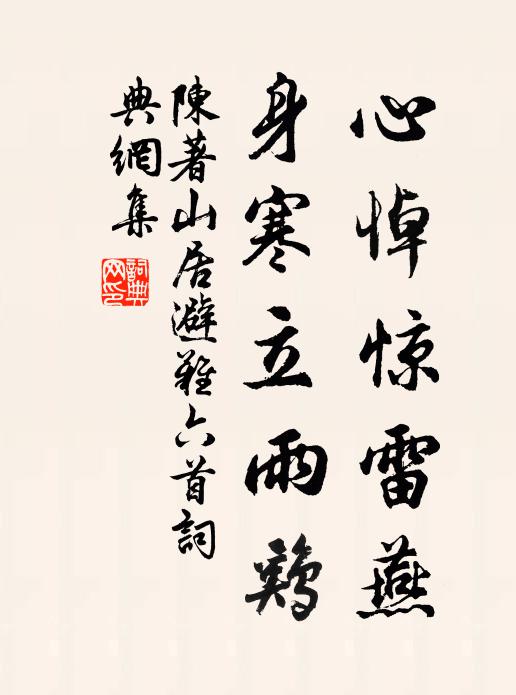 心悼惊雷燕
身寒立雨鷄
陳著山居避難六首詞
典網集
詞典
网印